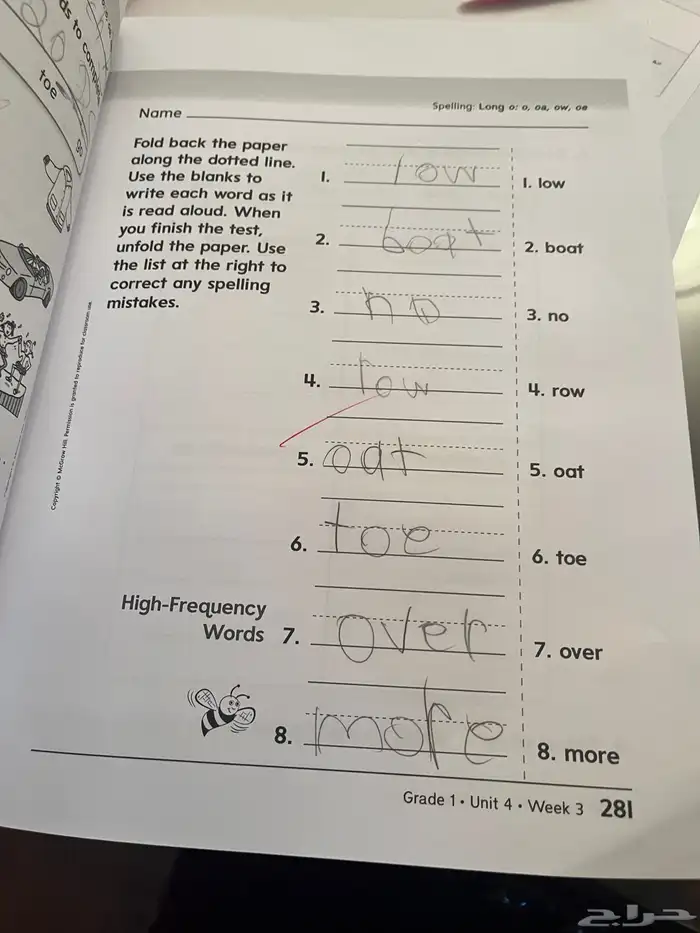 ds to complete
toe
so
Spelling: Long o: o, oa, ow, oe
Name
Fold back the paper
along the dotted line.
Use the blanks to
write each word as it
is read aloud. When
you finish the test,
unfold the paper. Use
the list at the right to
correct any spelling
mistakes.
1. low 1. low
2. boat 2. boat
3. no 3. no
4. row 4. row
5. oat 5. oat
6. toe 6. toe
High-Frequency
Words 7. over 7. over
8. more 8. more
Copyright © McGraw Hill. Permission is granted to reproduce for classroom use.
Grade 1 • Unit 4 • Week 3 281
حراج